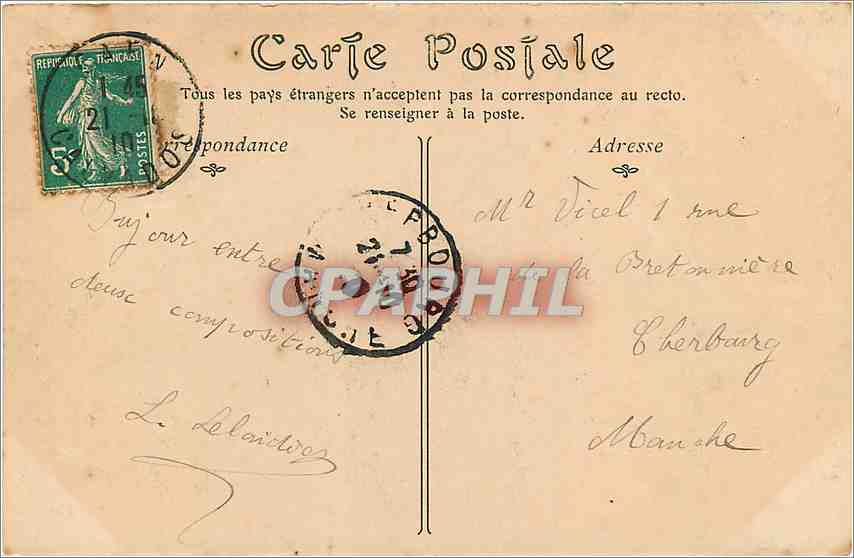 Carte Postale
Tous les pays étrangers n'acceptent pas la correspondance au recto.
Se renseigner à la poste.
Correspondance
Adresse
REPUBLIQUE FRANÇAISE
POSTES
5
7 45
21
10
CHERBOURG
7 30
21
10
MANCHE
Bujour entre
deux compositions
L. Lelaidier
Mr Vicel 1 rue
de la Bretonnière
Cherbourg
Manche
CPAPHIL